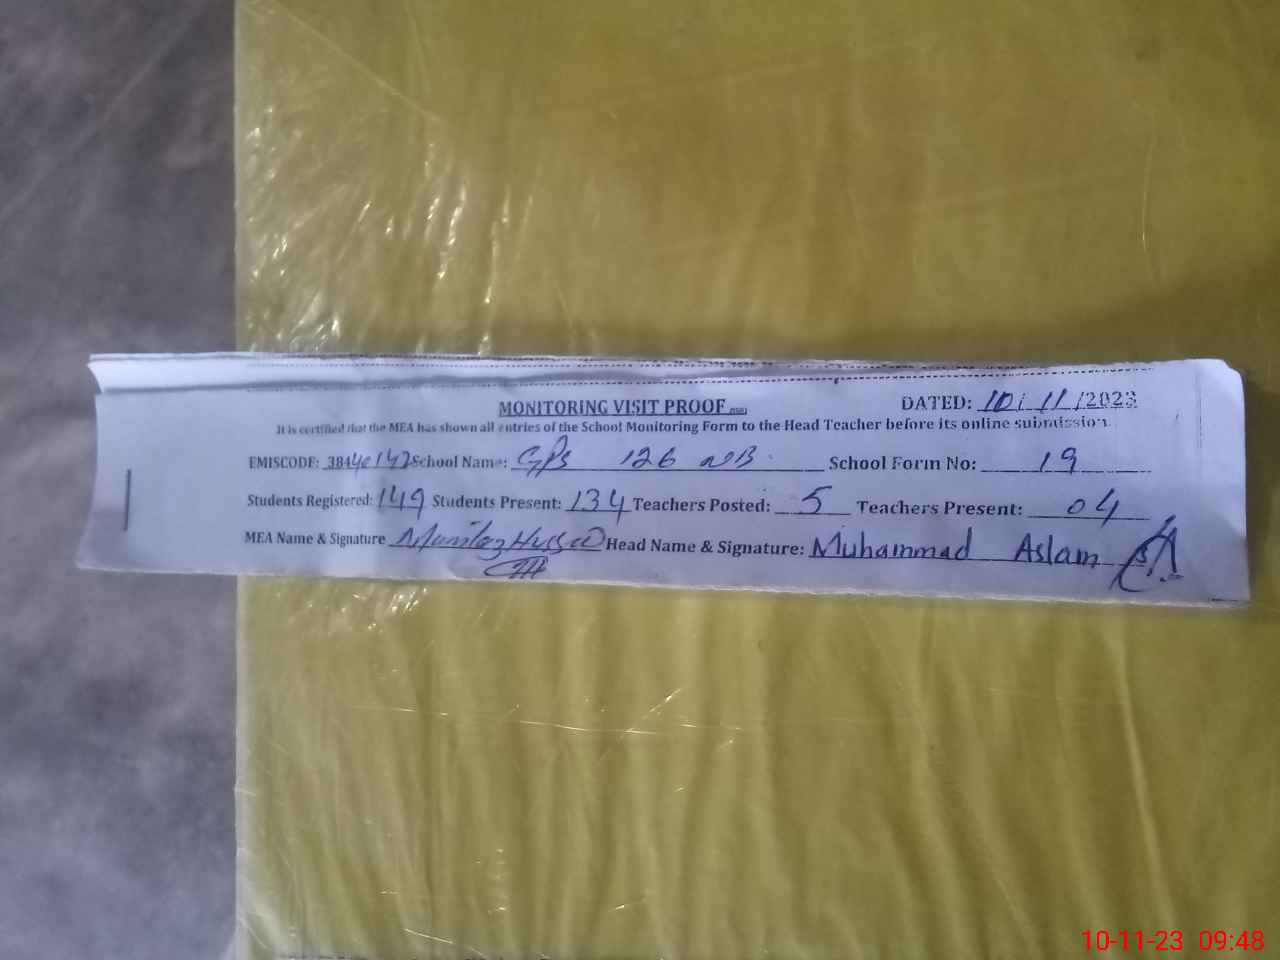 MONITORING VISIT PROOF
DATED: 10/11/2023
It is certified that the MEA has shown all entries of the School Monitoring Form to the Head Teacher before its online submission.
EMISCODE: 38440142 School Name: GPS 126 NB School Form No: 19
Students Registered: 149 Students Present: 134 Teachers Posted: 5 Teachers Present: 04
MEA Name & Signature Mumtaz Hussain Head Name & Signature: Muhammad Aslam
10-11-23 09:48